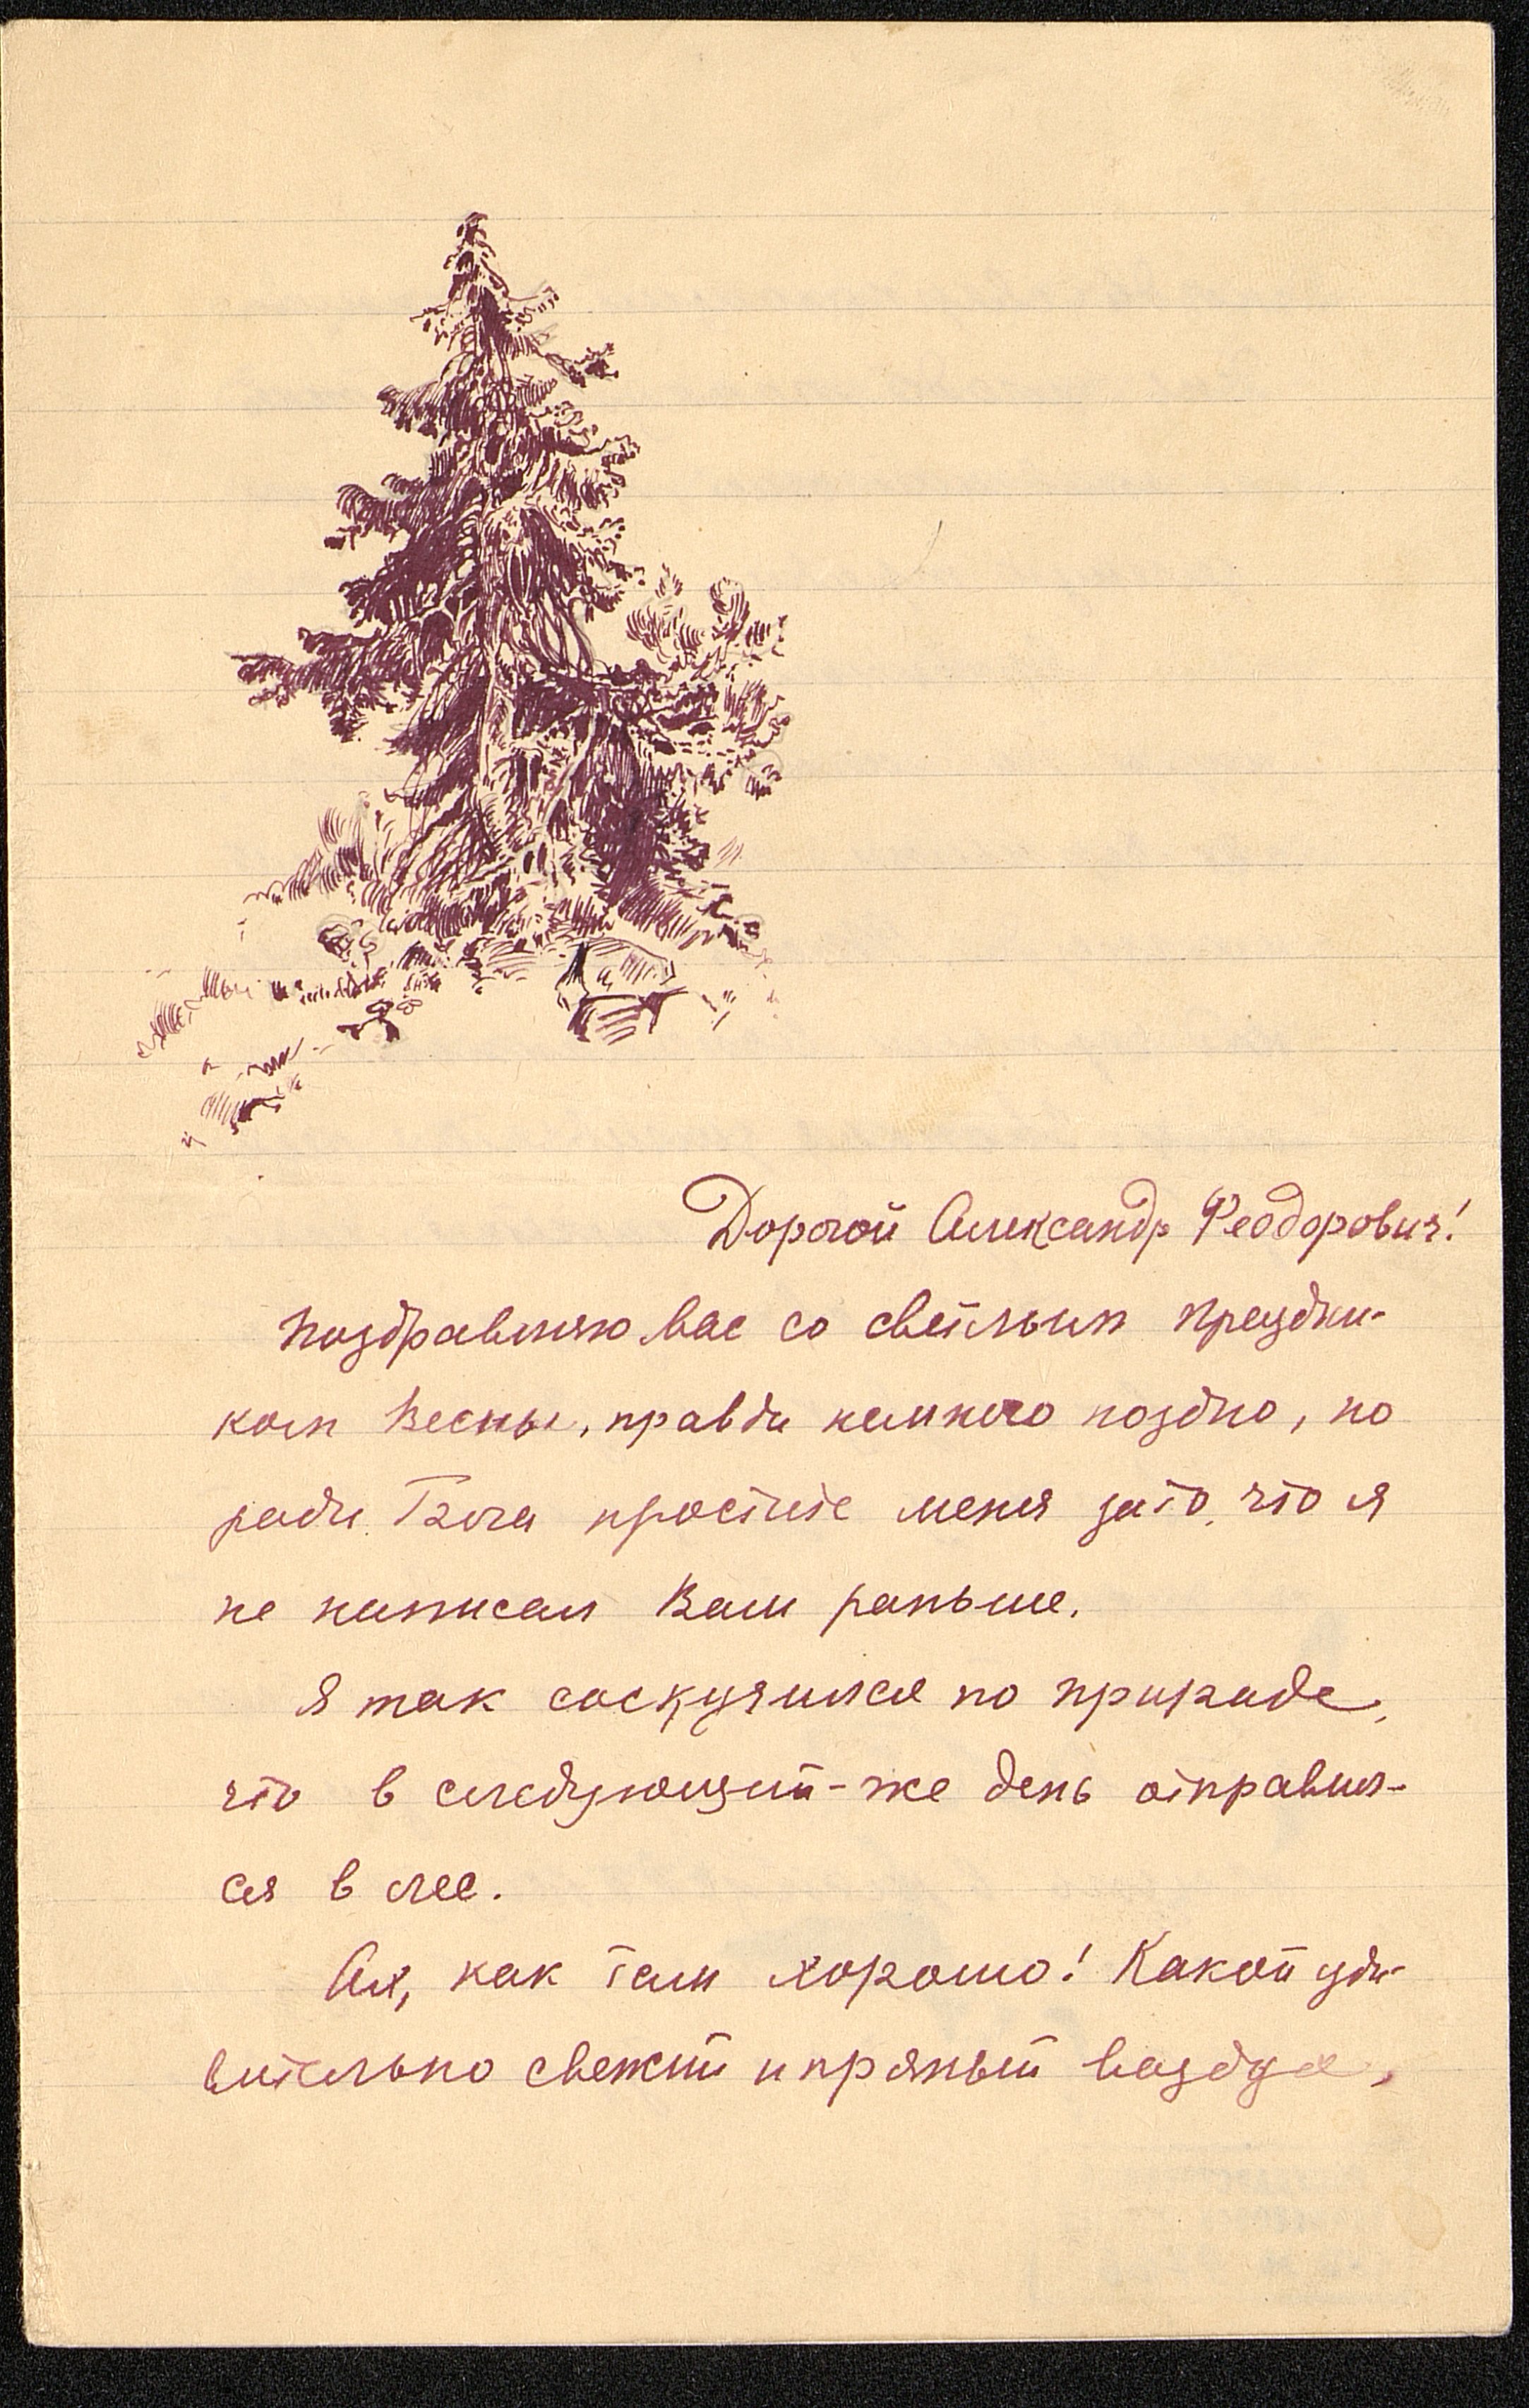 Дорогой Александр Феодорович!
Поздравляю вас со светлым праздни-
ком Весны, правда немного поздно, но
ради Бога простите меня за то, что я
не написал Вам раньше.
Я так соскучился по природе,
что в следующий-же день отправил-
ся в лес.
Ах, как там хорошо! Какой уди-
вительно свежий и пряный воздух,